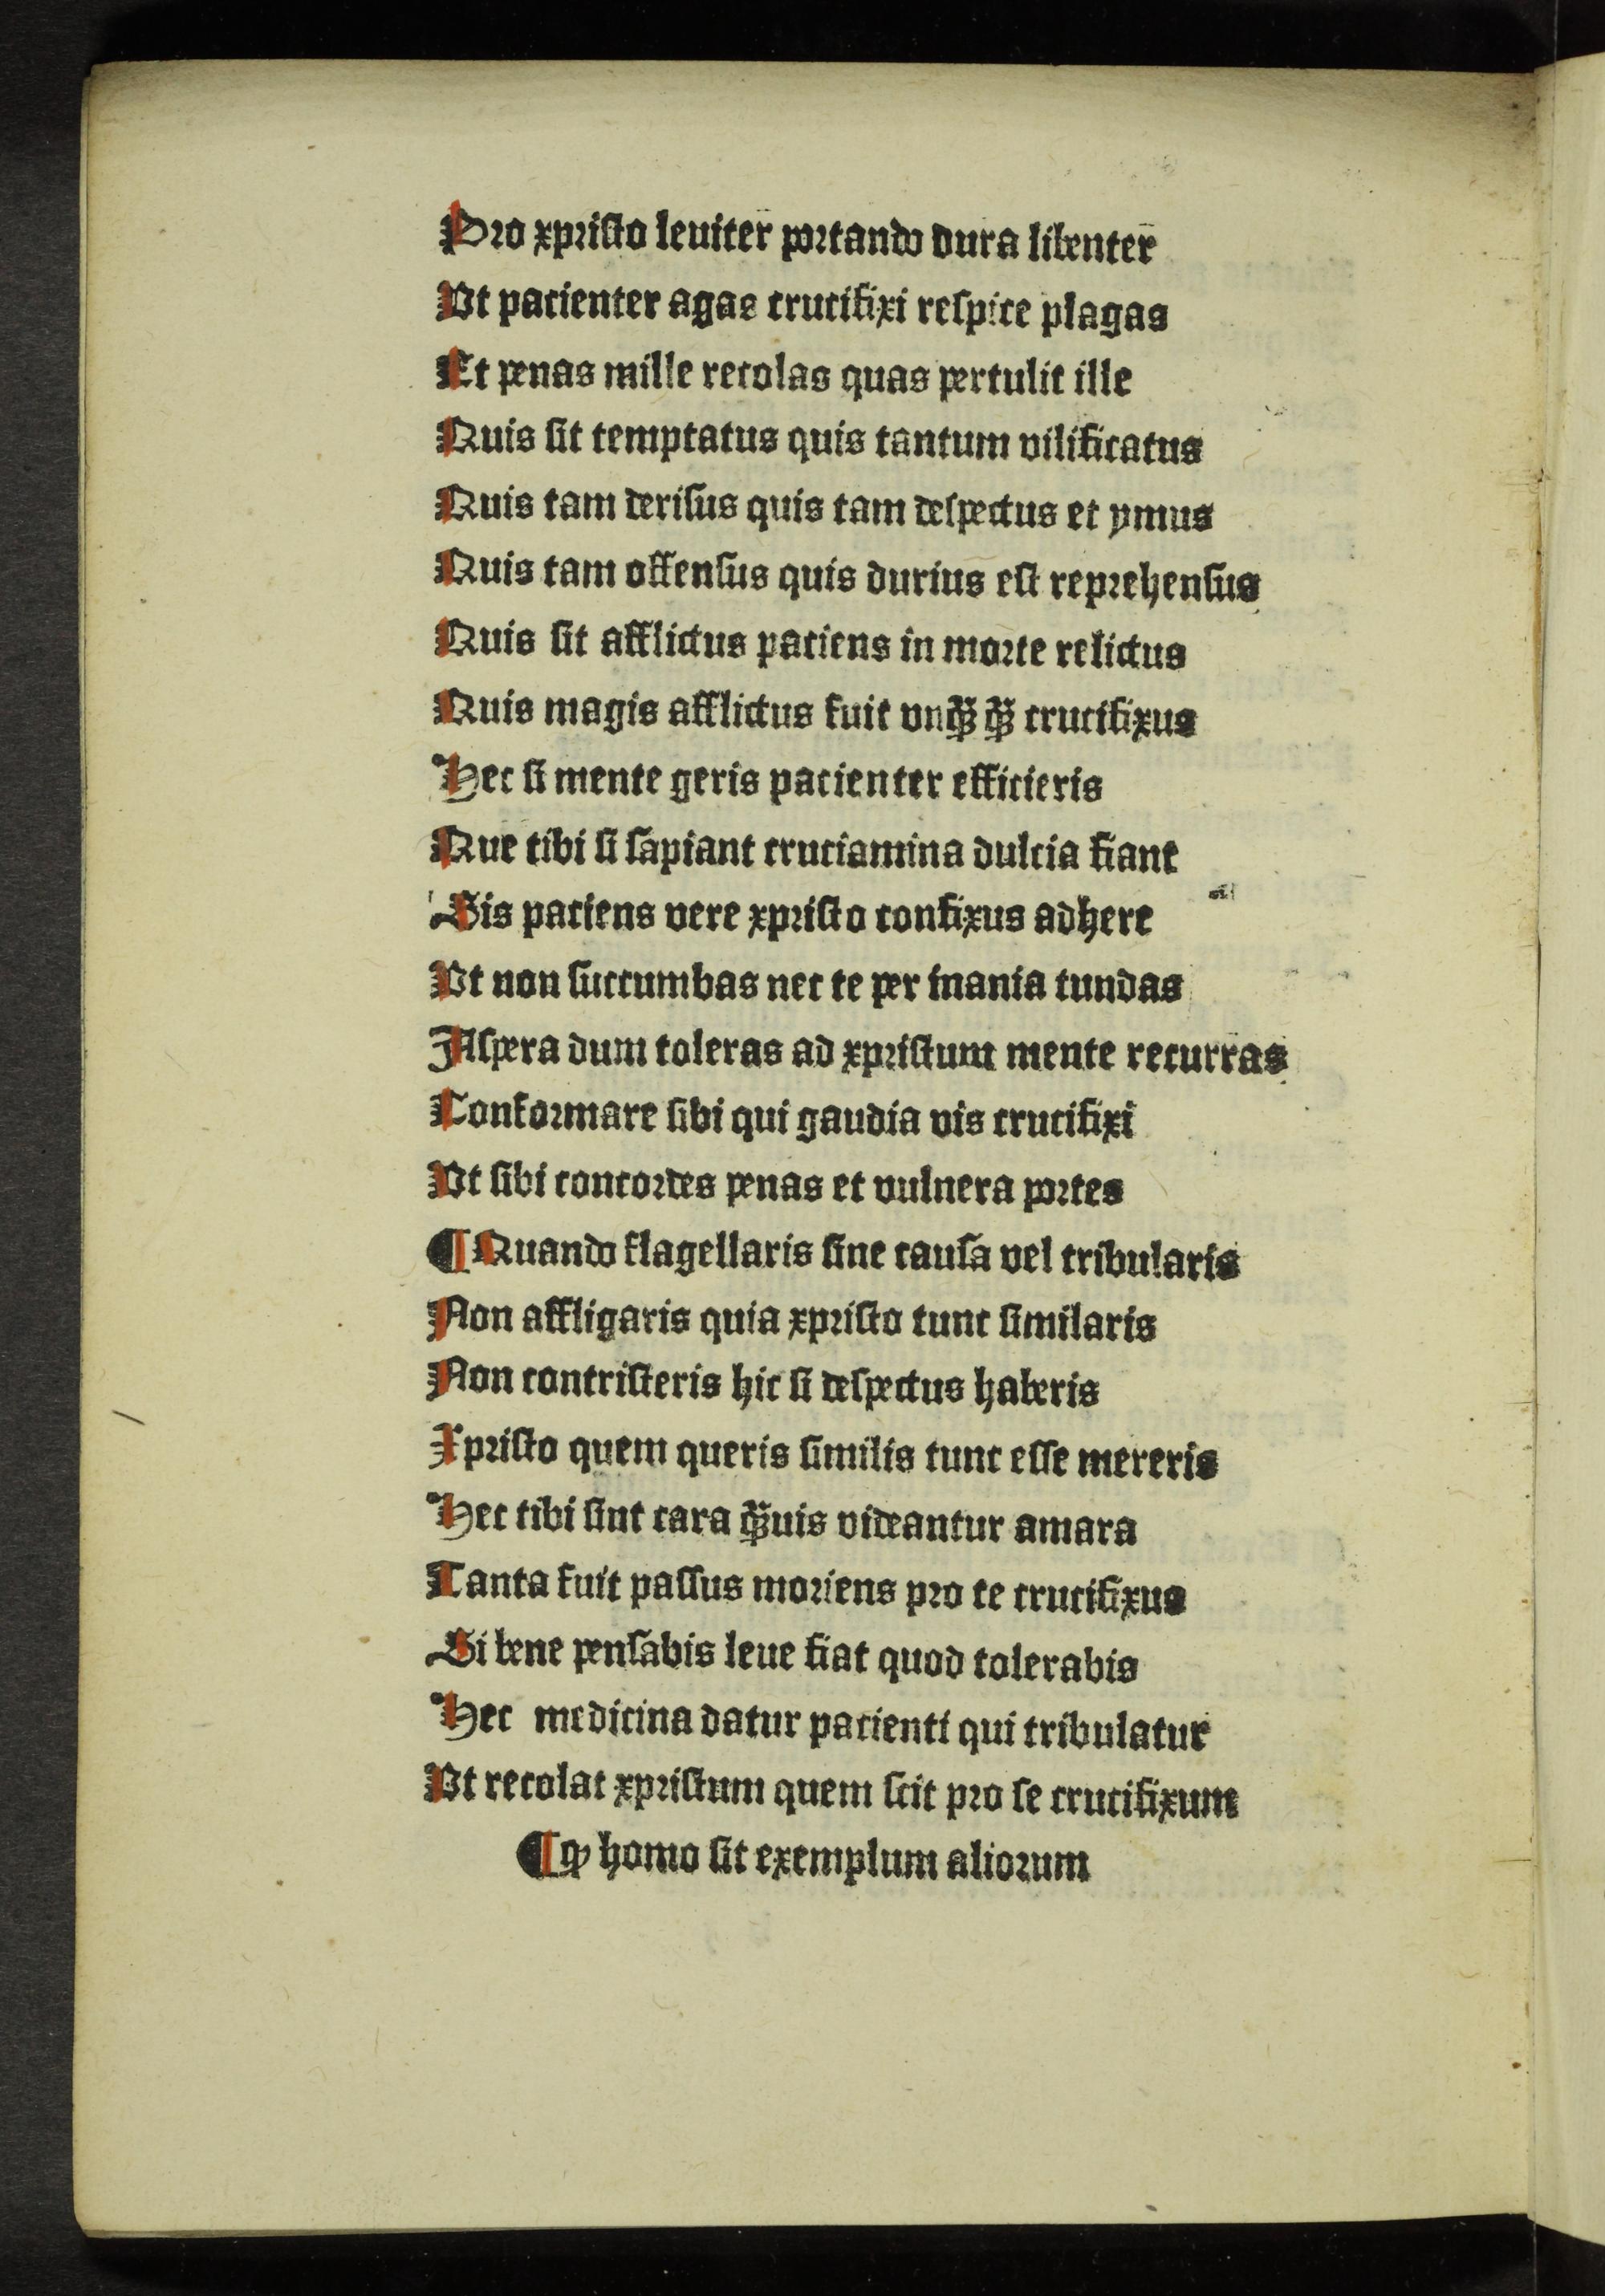 Pro xpristo leuiter portando dura libenter
Vt pacienter agas crucifixi respice plagas
Et penas mille recolas quas pertulit ille
Quis sit temptatus quis tantum vilificatus
Quis tam derisus quis tam despectus et ymus
Quis tam offensus quis durius est reprehensus
Quis sit afflictus paciens in morte relictus
Quis magis afflictus fuit vnqꝫ̃ qꝫ̃ crucifixus
Hec si mente geris pacienter efficieris
Que tibi si sapiant cruciamina dulcia fiant
Sis paciens vere xpristo confixus adhere
Vt non succumbas nec te per inania tundas
Aspera dum toleras ad xpristum mente recurras
Conformare sibi qui gaudia vis crucifixi
Vt sibi concordes penas et vulnera portes
¶ Quando flagellaris sine causa vel tribularis
Non affligaris quia xpristo tunc similaris
Non contristeris hic si despectus haberis
Xpristo quem queris similis tunc esse mereris
Hec tibi sint cara qꝫ̃uis videantur amara
Tanta fuit passus moriens pro te crucifixus
Si bene pensabis leue fiat quod tolerabis
Hec medicina datur pacienti qui tribulatur
Vt recolat xpristum quem scit pro se crucifixum
¶ ꝙ homo sit exemplum aliorum